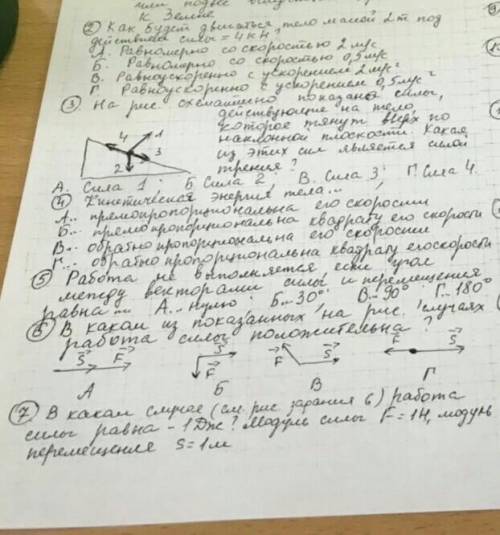 к Земле
② Как будет двигаться тело массой 2 т под
действием силы = 4 кН,
А. Равномерно со скоростью 2 м/с
Б. Равномерно со скоростью 0,5 м/с
В. Равноускоренно с ускорением 2 м/с²
Г. Равноускоренно с ускорением 0,5 м/с²
③ На рис. схематично показаны силы,
действующие на тело,
которое тянут вверх по
наклонной плоскости. Какая
из этих сил является силой
трения?
4 1
3
2
А. Сила 1; Б. Сила 2; В. Сила 3; Г. Сила 4.
④ Кинетическая энергия тела...
А... прямопропорциональна его скорости
Б... прямопропорциональна квадрату его скорости
В... обратно пропорциональна его скорости
Г... обратно пропорциональна квадрату его скорости
⑤ Работа не выполняется если угол
между векторами силы и перемещения
равна... А... нулю; Б... 30°; В... 90° Г... 180°
⑥ В каком из показанных на рис. случаях
работа силы положительна?
S F
S F
F S
F S
А Б В Г
⑦ В каком случае (см. рис. задания 6) работа
силы равна -1 Дж? Модуль силы F = 1Н, модуль
перемещения S = 1 м